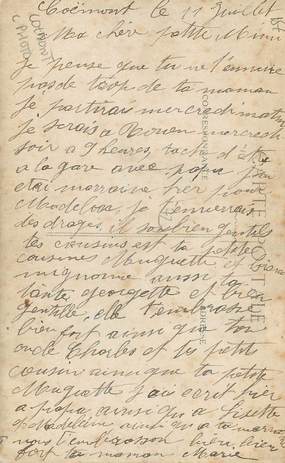 le 11 Juillet
Ma chère petite Mimi
Je pense que tu ne t'ennuie
pas de trop de ta maman
Je partirai mercredi matin
Je serais a mercredi
soir a 9 heures, tache d'être
a la gare avec papa, Jeu
etai marraine hier pour
Madelon, je t'enverrais
des drages, il sont bien gentils
tes cousins est ta petite
cousines Muguette est bien
mignonne aussi, la
tante georgette et bien
gentille, elle t'embrasse
bien fort ainsi que ton
oncle Charles et tes petit
cousin ainsi que ta petite
Muguette J'ai ecrit hier
a papa, ainsi qu'a Lisette
et Madeleine ainsi qu'a ta
nous t'embrasson bien, bien
fort ta maman Marie
CORRESPONDANCE